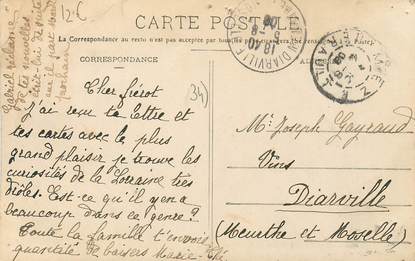 CARTE POSTALE
La Correspondance au recto n'est pas acceptée par tous
CORRESPONDANCE
12€
34
Gabriel réclame
de tes nouvelles
prochain
Cher frérot
J'ai reçu ta lettre et
tes cartes avec le plus
grand plaisir je trouve les
curiosités de la Lorraine très
drôles. Est-ce qu'il y en a
beaucoup dans ce genre?
Toute la famille t'envoie
quantité de baisers Marie-Thé
DIARVILLE
18-10
MÈZE
HÉRAULT
Mr Joseph Gayraud
Vins
Diarville
(Meurthe et Moselle)